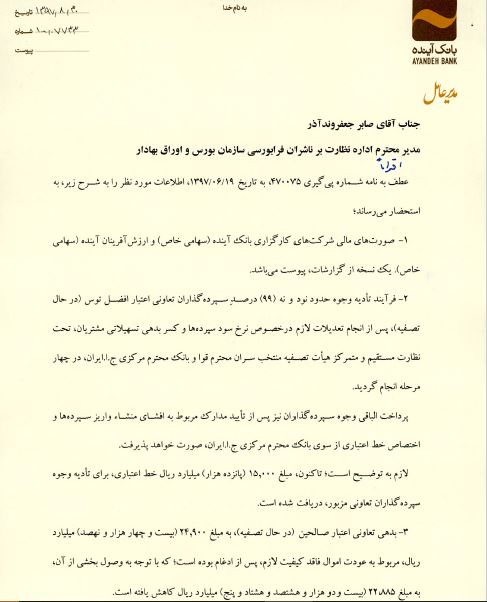 به نام خدا
تاریخ ۱۳۹۷/۰۸/۳۰
شماره ۱۰۰/۰۷۷۳۳
پیوست
بانک آینده
AYANDEH BANK
مدیرعامل
جناب آقای صابر جعفروندآذر
مدیر محترم اداره نظارت بر ناشران فرابورسی سازمان بورس و اوراق بهادار
عطف به نامه شماره پی‌گیری ۴۷۰۰۷۵، به تاریخ ۱۳۹۷/۰۶/۱۹، اطلاعات مورد نظر را به شرح زیر، به
استحضار می‌رساند؛
۱- صورت‌های مالی شرکت‌های کارگزاری بانک آینده (سهامی خاص) و ارزش‌آفرینان آینده (سهامی
خاص). یک نسخه از گزارشات، پیوست می‌باشد.
۲- فرآیند تأدیه وجوه حدود نود و نه (۹۹) درصدِ سپرده‌گذاران تعاونی اعتبار افضل توس (در حال
تصفیه)، پس از انجام تعدیلات لازم درخصوص نرخ سود سپرده‌ها و کسر بدهی تسهیلاتی مشتریان، تحت
نظارت مستقیم و متمرکز هیأت تصفیه منتخب سران محترم قوا و بانک محترم مرکزی ج.ا.ایران، در چهار
مرحله انجام گردید.
پرداخت الباقی وجوه سپرده‌گذاران نیز پس از تأیید مدارک مربوط به افشای منشاء واریز سپرده‌ها و
اختصاص خط اعتباری از سوی بانک محترم مرکزی ج.ا.ایران، صورت خواهد پذیرفت.
لازم به توضیح است؛ تاکنون، مبلغ ۱۵,۰۰۰ (پانزده هزار) میلیارد ریال خط اعتباری، برای تأدیه وجوه
سپرده‌گذاران تعاونی مزبور، دریافت شده است.
۳- بدهی تعاونی اعتبار صالحین (در حال تصفیه)، به مبلغ ۲۴,۹۰۰ (بیست و چهار هزار و نهصد) میلیارد
ریال، مربوط به عودت اموال فاقد کیفیت لازم، پس از ادغام بوده است؛ که با توجه به وصول بخشی از آن،
به مبلغ ۲۲,۸۸۵ (بیست و دو هزار و هشتصد و هشتاد و پنج) میلیارد ریال کاهش یافته است.